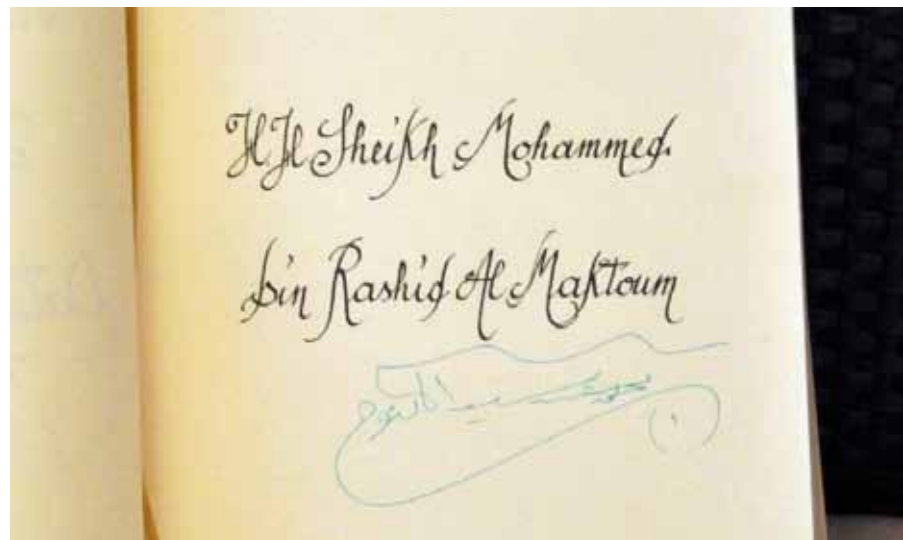 H.H Sheikh Mohammed
bin Rashid Al Maktoum
المكتوم
(١)